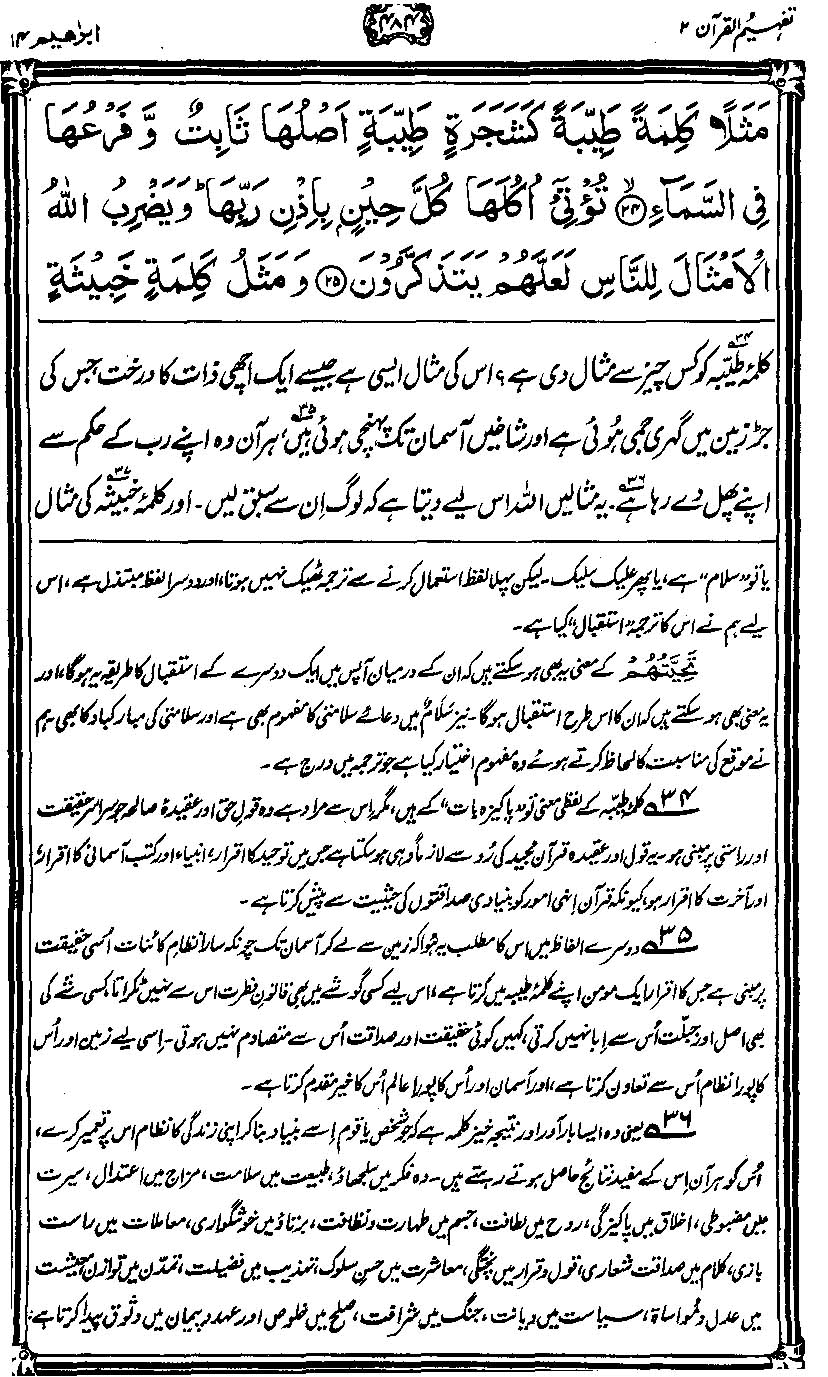 تفہیم القرآن ۲
۴۸۴
ابرٰھیم ۱۴
مَثَلًا كَلِمَةً طَيِّبَةً كَشَجَرَةٍ طَيِّبَةٍ اَصْلُهَا ثَابِتٌ وَّ فَرْعُهَا
فِي السَّمَآءِ ۙ﴿۲۴﴾ تُؤْتِيْٓ اُكُلَهَا كُلَّ حِيْنٍۭ بِاِذْنِ رَبِّهَا ؕ وَيَضْرِبُ اللّٰهُ
الْاَمْثَالَ لِلنَّاسِ لَعَلَّهُمْ يَتَذَكَّرُوْنَ ﴿۲۵﴾ وَ مَثَلُ كَلِمَةٍ خَبِيْثَةٍ
کلمۂ طیّبہ۳۴ کو کس چیز سے مثال دی ہے؟ اس کی مثال ایسی ہے جیسے ایک اچھی ذات کا درخت جس کی
جڑ زمین میں گہری جمی ہوئی ہے اور شاخیں آسمان تک پہنچی ہوئی ہیں۳۵، ہر آن وہ اپنے رب کے حکم سے
اپنے پھل دے رہا ہے۳۶۔ یہ مثالیں اللہ اس لیے دیتا ہے کہ لوگ اِن سے سبق لیں۔ اور کلمۂ خبیثہ۳۷ کی مثال
یا تو ”سلام“ ہے، یا پھر علیک سلیک۔ لیکن پہلا لفظ استعمال کرنے سے ترجمہ ٹھیک نہیں ہوتا، اور دوسرا لفظ مبتذل ہے، اس
لیے ہم نے اس کا ترجمہ ”استقبال“ کیا ہے۔
تَحِیَّتُہُمْ کے معنی یہ بھی ہو سکتے ہیں کہ ان کے درمیان آپس میں ایک دوسرے کے استقبال کا طریقہ یہ ہوگا، اور
یہ معنی بھی ہو سکتے ہیں کہ ان کا اس طرح استقبال ہوگا۔ نیز سَلَامٌ میں دعائے سلامتی کا مفہوم بھی ہے اور سلامتی کی مبارکباد کا بھی ہم
نے موقع کی مناسبت کا لحاظ کرتے ہوئے وہ مفہوم اختیار کیا ہے جو ترجمہ میں درج ہے۔
۳۴ کلمۂ طیبہ کے لفظی معنی تو ”پاکیزہ بات“ کے ہیں، مگر اِس سے مراد ہے وہ قولِ حق اور عقیدۂ صالحہ جو سراسر حقیقت
اور راستی پر مبنی ہو۔ یہ قول اور عقیدہ قرآن مجید کی رُو سے لازماً وہی ہو سکتا ہے جس میں توحید کا اقرار، انبیاء اور کتب آسمانی کا اقرار،
اور آخرت کا اقرار ہو، کیونکہ قرآن اِنہی امور کو بنیادی صداقتوں کی حیثیت سے پیش کرتا ہے۔
۳۵ دوسرے الفاظ میں اس کا مطلب یہ ہُوا کہ زمین سے لے کر آسمان تک چونکہ سارا نظامِ کائنات اُسی حقیقت
پر مبنی ہے جس کا اقرار ایک مومن اپنے کلمۂ طیبہ میں کرتا ہے، اس لیے کسی گوشے میں بھی قانونِ فطرت اس سے نہیں ٹکراتا، کسی شے کی
بھی اصل اور جبلّت اُس سے اِبا نہیں کرتی، کہیں کوئی حقیقت اور صداقت اُس سے متصادم نہیں ہوتی۔ اِسی لیے زمین اور اُس
کا پورا نظام اُس سے تعاون کرتا ہے، اور آسمان اور اُس کا پورا عالم اُس کا خیر مقدم کرتا ہے۔
۳۶ یعنی وہ ایسا بار آور اور نتیجہ خیز کلمہ ہے کہ جو شخص یا قوم اِسے بنیاد بنا کر اپنی زندگی کا نظام اس پر تعمیر کرے،
اُس کو ہر آن اِس کے مفید نتائج حاصل ہوتے رہتے ہیں۔ وہ فکر میں سلجھاؤ، طبیعت میں سلامت، مزاج میں اعتدال، سیرت
میں مضبوطی، اخلاق میں پاکیزگی، روح میں لطافت، جسم میں طہارت و نظافت، برتاؤ میں خوشگواری، معاملات میں راست
بازی، کلام میں صداقت شعاری، قول و قرار میں پختگی، معاشرت میں حسن سلوک، تہذیب میں فضیلت، تمدّن میں توازن، معیشت
میں عدل و مُواساۃ، سیاست میں دیانت، جنگ میں شرافت، صلح میں خلوص اور عہد و پیمان میں وثوق پیدا کرتا ہے۔